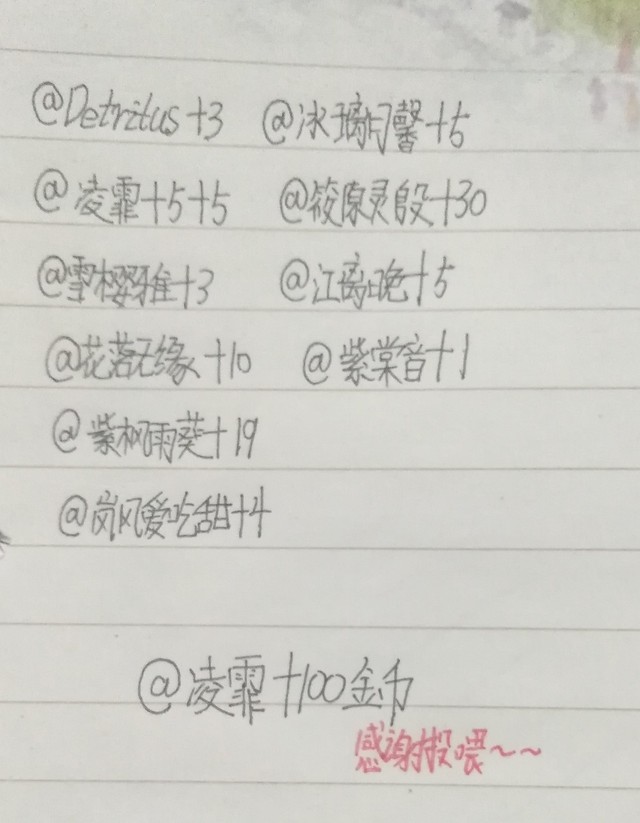 @Detritus+3 @冰璃月馨+5
@凌霏+5+5 @筱原灵殷+30
@雪樱雅+3 @江离晚+5
@花落无缘+10 @紫棠音+1
@紫枫雨葵+19
@岚风爱吃甜+4
@凌霏+100金币
感谢投喂~~